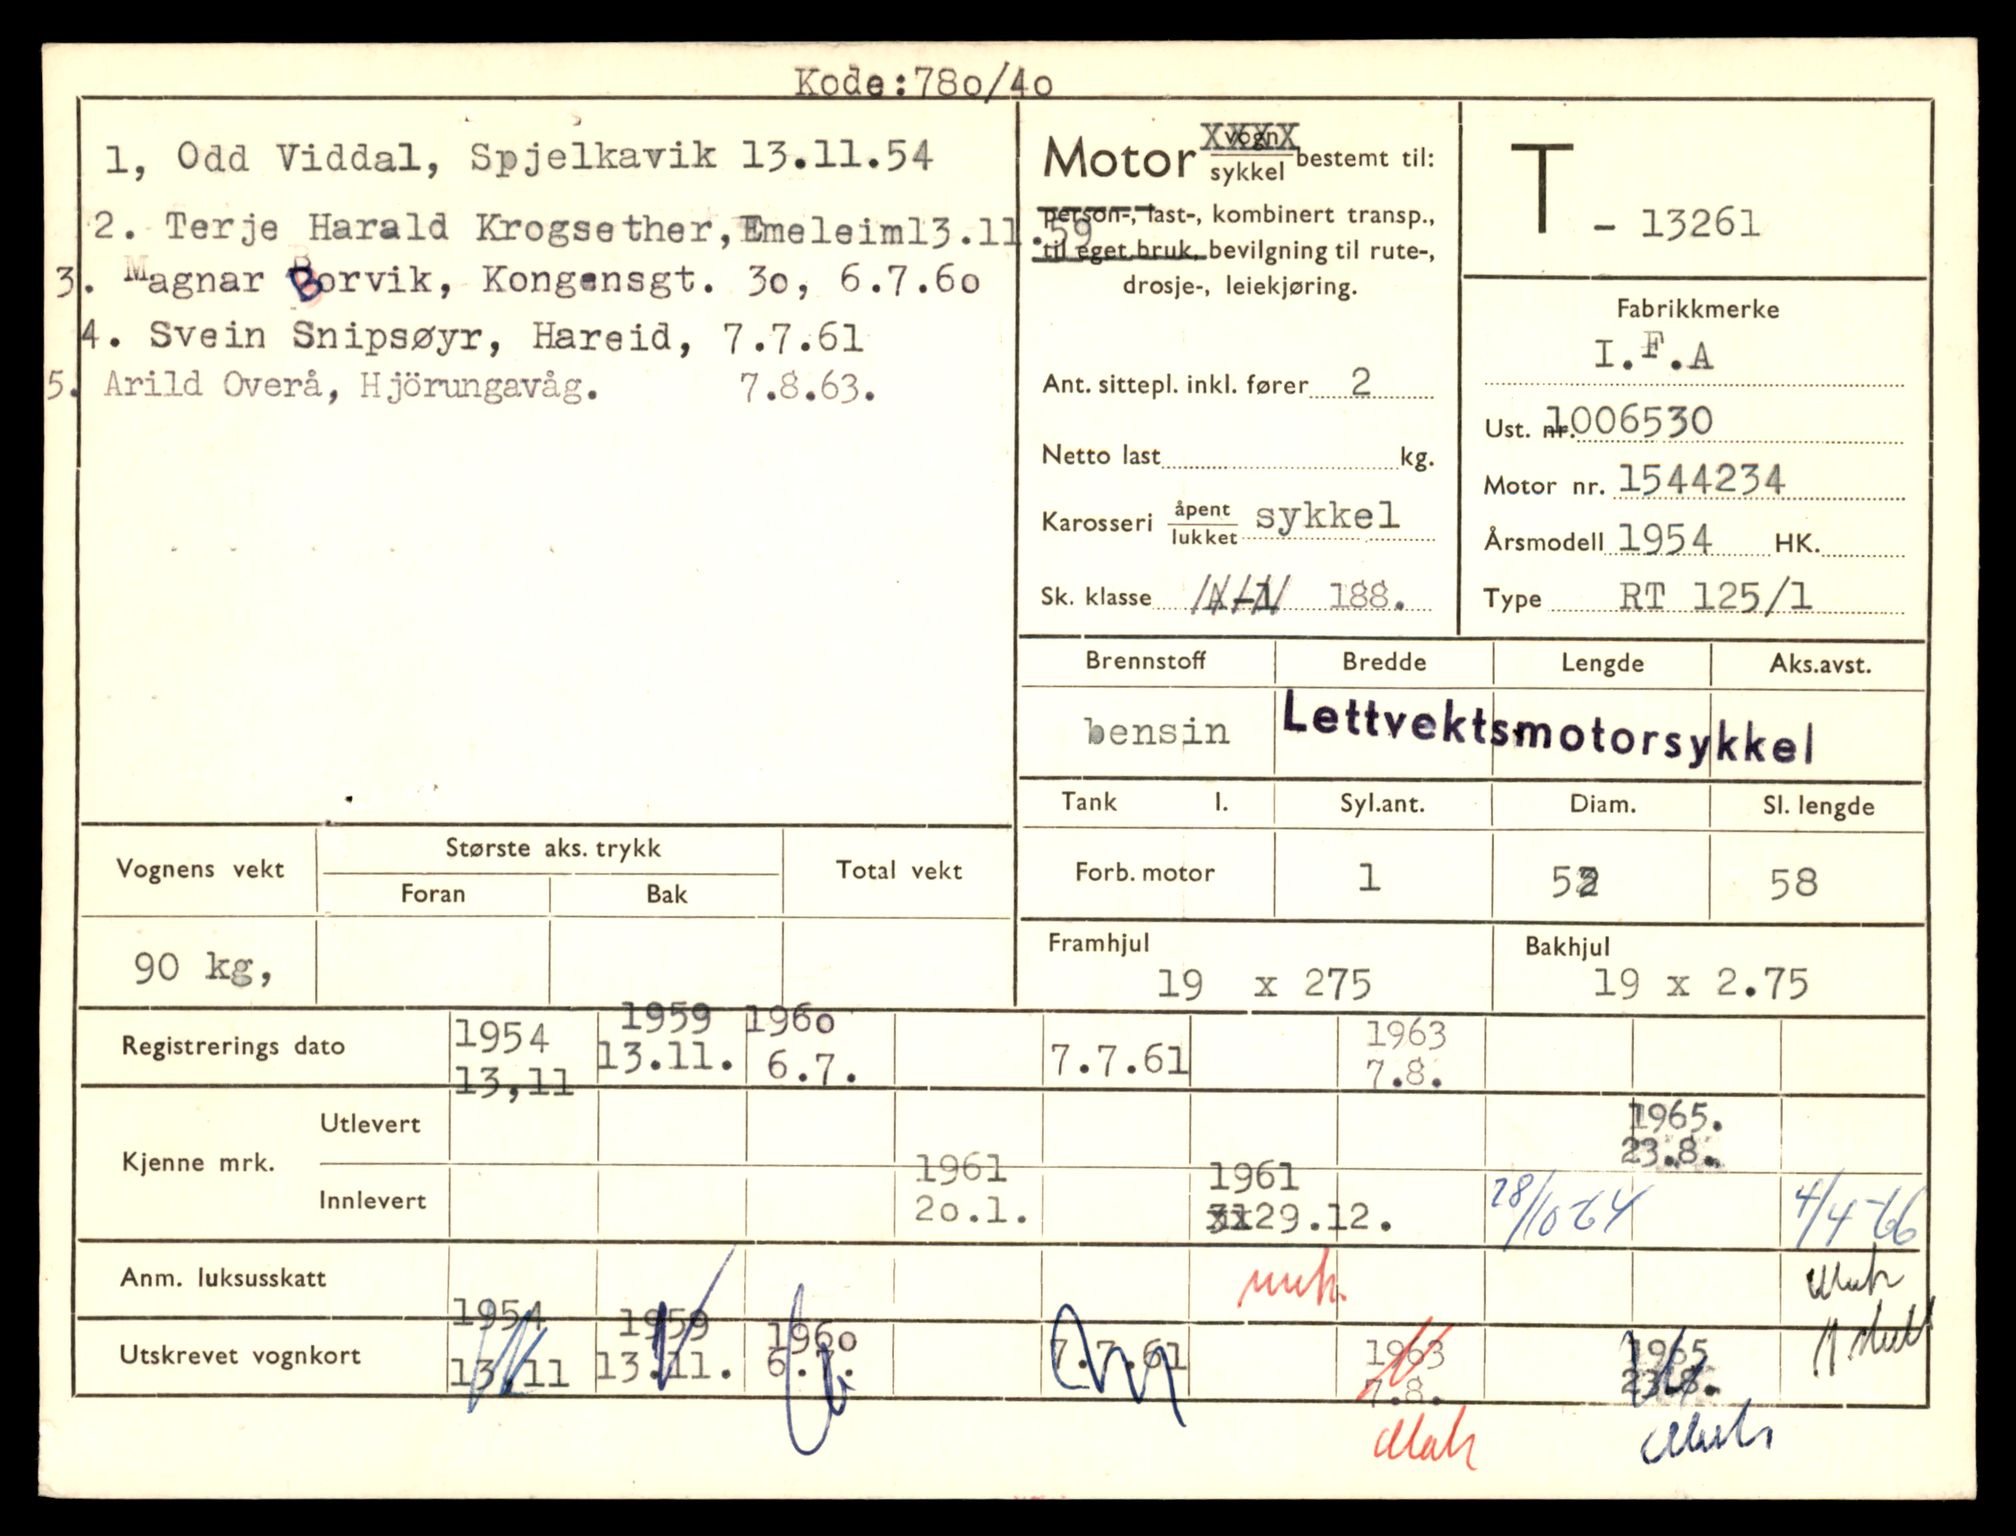 Kode:78o/4o
1, Odd Viddal, Spjelkavik 13.11.54
2. Terje Harald Krogsether, Emeleim13.11.59
3. Magnar Borvik, Kongensgt. 3o, 6.7.6o
4. Svein Snipsøyr, Hareid, 7.7.61
5. Arild Overå, Hjörungavåg. 7.8.63.
Motor vogn XXXX sykkel bestemt til:
person-, last-, kombinert transp.,
til eget bruk, bevilgning til rute-,
drosje-, leiekjøring.
Ant. sittepl. inkl. fører 2
Netto last kg.
Karosseri åpent lukket sykkel
Sk. klasse A-1 188.
T - 13261
Fabrikkmerke
I.F.A
Ust. nr. 1006530
Motor nr. 1544234
Årsmodell 1954 HK.
Type RT 125/1
Brennstoff Bredde Lengde Aks.avst.
bensin Lettvektsmotorsykkel
Tank l. Syl.ant. Diam. Sl. lengde
Forb. motor 1 52 58
Framhjul Bakhjul
19 x 275 19 x 2.75
Vognens vekt Største aks. trykk Total vekt
Foran Bak
90 kg,
Registrerings dato 1954 1959 196o 1963
13,11 13.11. 6.7. 7.7.61 7.8.
Kjenne mrk.
Utlevert 1965.
23.8.
Innlevert 1961 1961 28/10-64 4/4-66
2o.1. 29.12.
Anm. luksusskatt
Utskrevet vognkort 1954 1959 196o 1963 1965
13.11 13.11. 6.7. 7.7.61 7.8. 23.8.